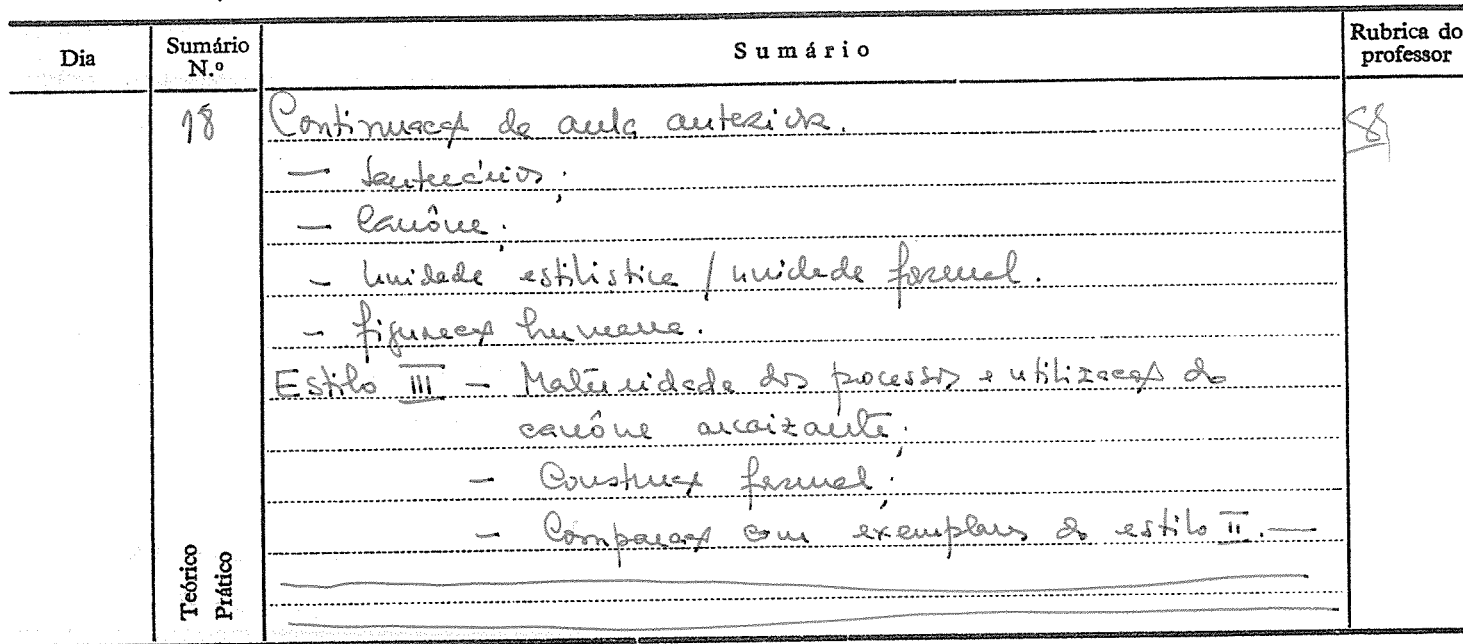 Dia
Sumário N.º
Sumário
Rubrica do professor
18
Continuação da aula anterior.
— Santuários;
— Canône;
— Unidade estilística / unidade formal.
— figuração humana.
Estilo III — Maturidade dos processos e utilização do
canône arcaizante;
— Construção formal;
— Comparação com exemplares do estilo II. —
Teórico
Prático